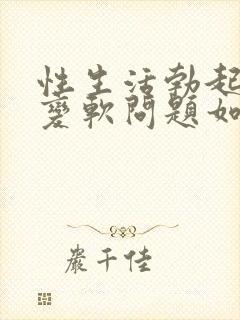 性生活勃起
變軟問題如
嚴千佳